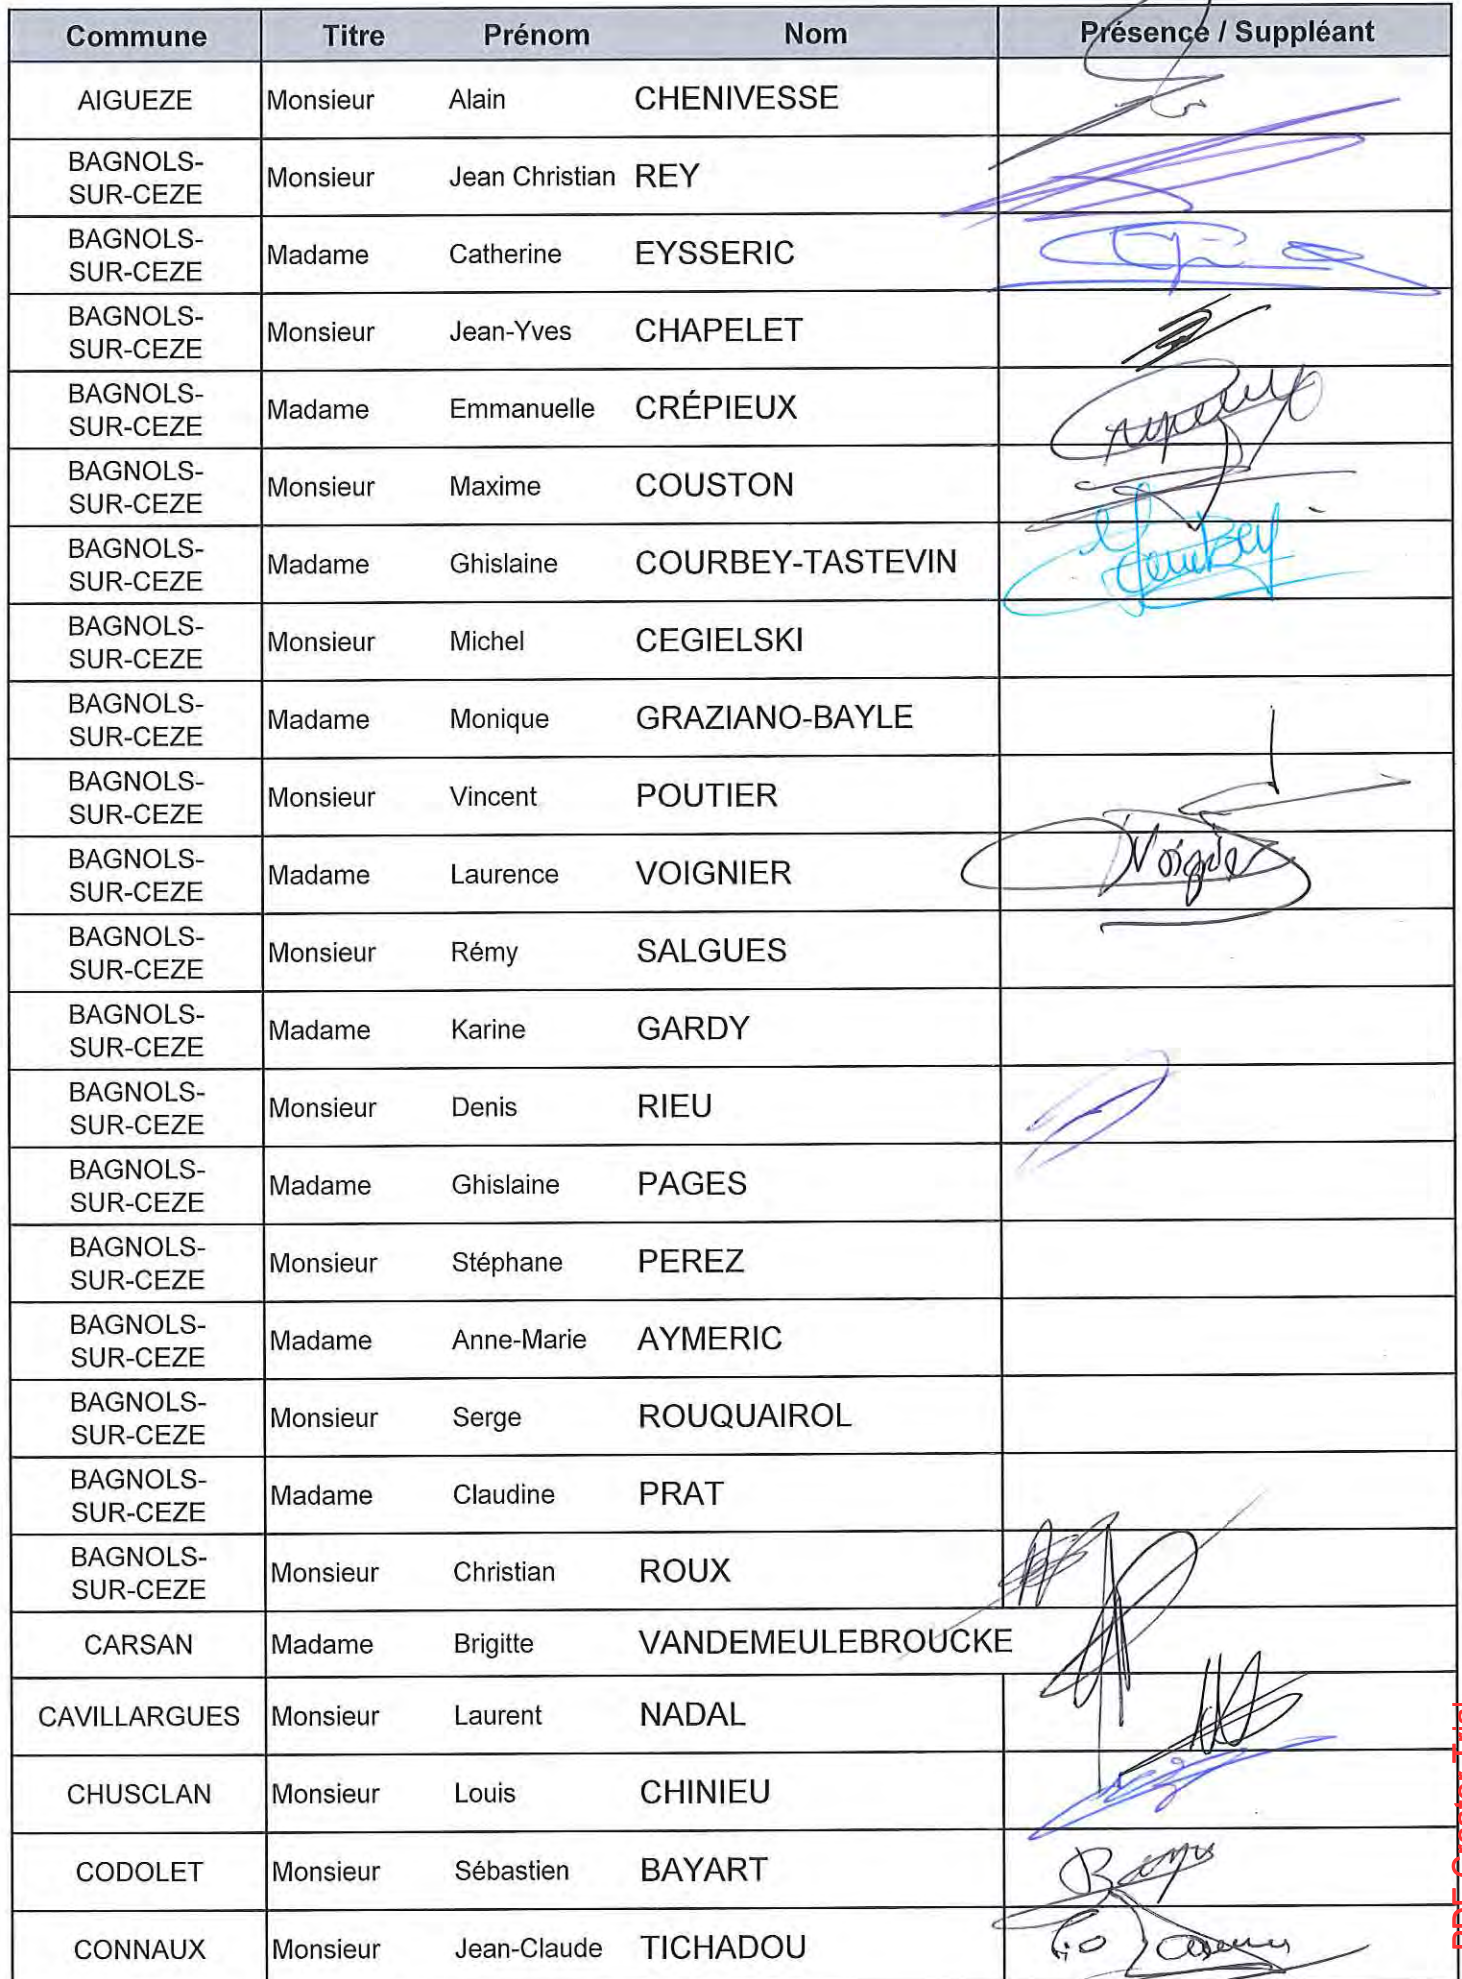 Commune Titre Prénom Nom Présence / Suppléant
AIGUEZE Monsieur Alain CHENIVESSE
BAGNOLS-
SUR-CEZE Monsieur Jean Christian REY
BAGNOLS-
SUR-CEZE Madame Catherine EYSSERIC
BAGNOLS-
SUR-CEZE Monsieur Jean-Yves CHAPELET
BAGNOLS-
SUR-CEZE Madame Emmanuelle CRÉPIEUX
BAGNOLS-
SUR-CEZE Monsieur Maxime COUSTON
BAGNOLS-
SUR-CEZE Madame Ghislaine COURBEY-TASTEVIN
BAGNOLS-
SUR-CEZE Monsieur Michel CEGIELSKI
BAGNOLS-
SUR-CEZE Madame Monique GRAZIANO-BAYLE
BAGNOLS-
SUR-CEZE Monsieur Vincent POUTIER
BAGNOLS-
SUR-CEZE Madame Laurence VOIGNIER
BAGNOLS-
SUR-CEZE Monsieur Rémy SALGUES
BAGNOLS-
SUR-CEZE Madame Karine GARDY
BAGNOLS-
SUR-CEZE Monsieur Denis RIEU
BAGNOLS-
SUR-CEZE Madame Ghislaine PAGES
BAGNOLS-
SUR-CEZE Monsieur Stéphane PEREZ
BAGNOLS-
SUR-CEZE Madame Anne-Marie AYMERIC
BAGNOLS-
SUR-CEZE Monsieur Serge ROUQUAIROL
BAGNOLS-
SUR-CEZE Madame Claudine PRAT
BAGNOLS-
SUR-CEZE Monsieur Christian ROUX
CARSAN Madame Brigitte VANDEMEULEBROUCKE
CAVILLARGUES Monsieur Laurent NADAL
CHUSCLAN Monsieur Louis CHINIEU
CODOLET Monsieur Sébastien BAYART
CONNAUX Monsieur Jean-Claude TICHADOU